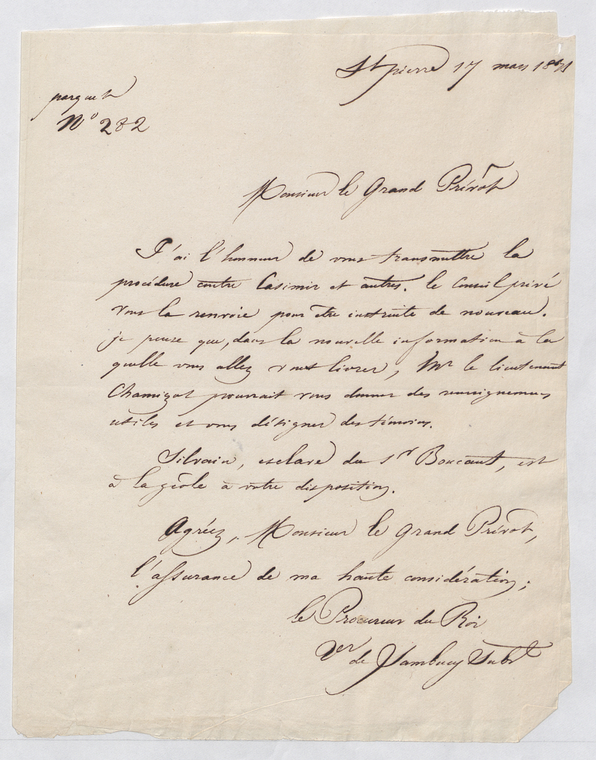 St pierre 17 mars 18
parquet
No 282
Monsieur le Grand Prévôt
J'ai l'honneur de vous transmettre la
procédure contre Casimir et autres. le Conseil privé
vous la renvoie pour être instruite de nouveau.
je pense que, dans la nouvelle information à la
quelle vous allez vous livrer, Mr le lieutenant
Chamizot pourrait vous donner des renseignemens
utiles et vous désigner des témoins.
Silvain, esclave du Sr Boucaut, est
à la geôle à votre disposition.
Agréez, Monsieur le Grand Prévôt,
l'assurance de ma haute considération;
le Procureur du Roi
de Jambucy Subt